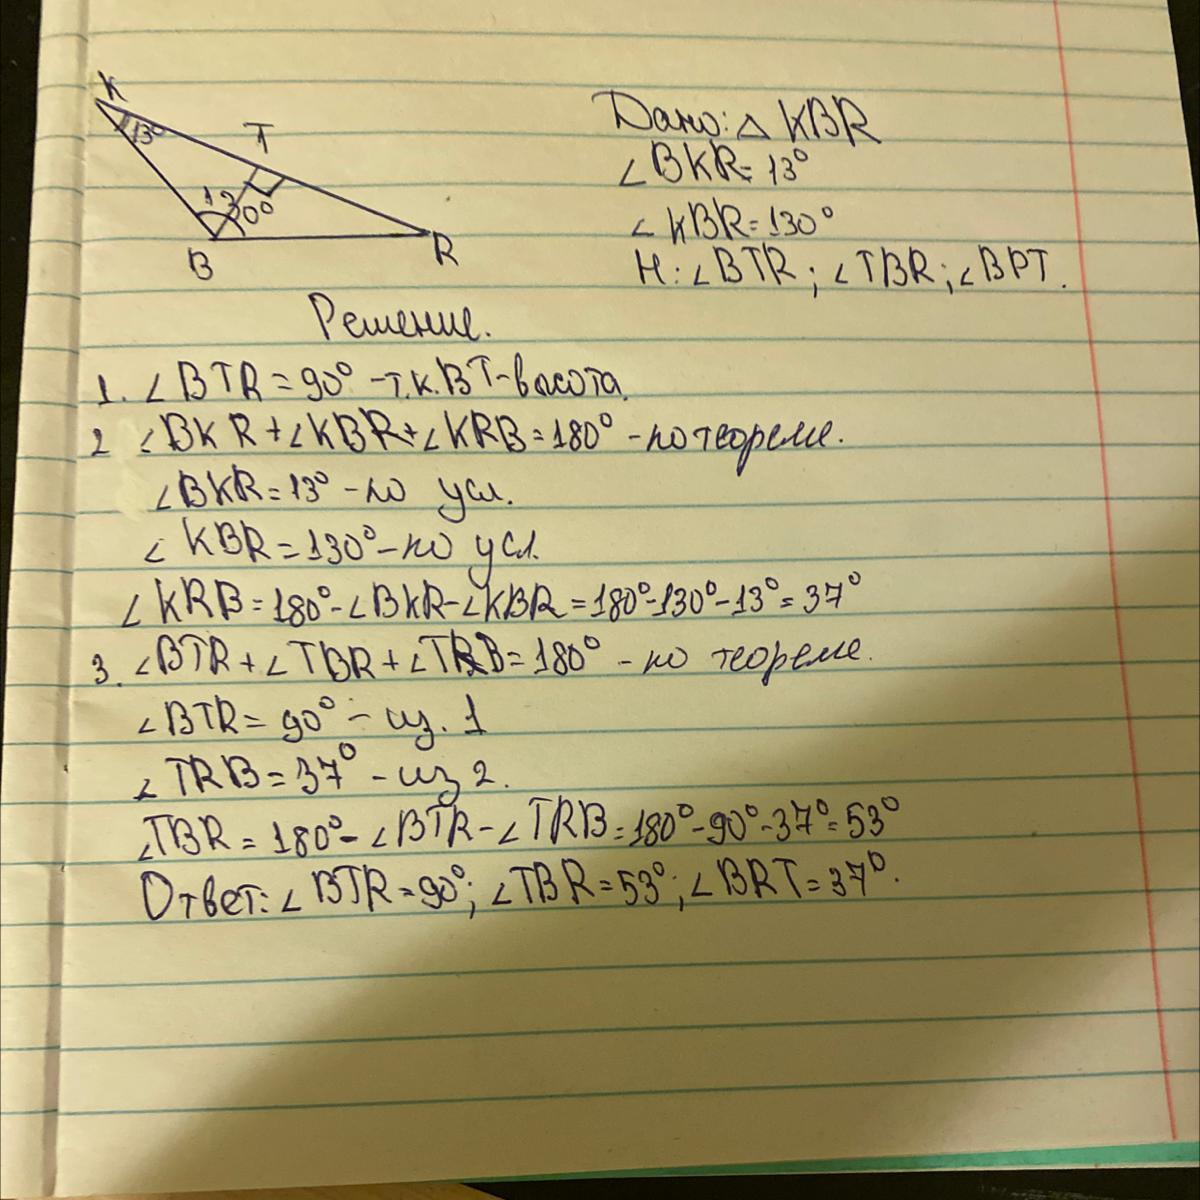 K
13°
T
130°
B
R
Дано: △ KBR
∠BKR=13°
∠KBR=130°
Н: ∠BTR; ∠TBR; ∠BPT.
Решение.
1. ∠BTR=90° -т.к. BT-высота.
2 ∠BKR+∠KBR+∠KRB=180° -по теореме.
∠BKR=13° -по усл.
∠KBR=130°-по усл.
∠KRB=180°-∠BKR-∠KBR=180°-130°-13°=37°
3. ∠BTR+∠TBR+∠TRB=180° -по теореме.
∠BTR=90° - из. 1
∠TRB=37° -из 2.
∠TBR=180°-∠BTR-∠TRB=180°-90°-37°=53°
Ответ: ∠BTR=90°; ∠TBR=53°; ∠BRT=37°.